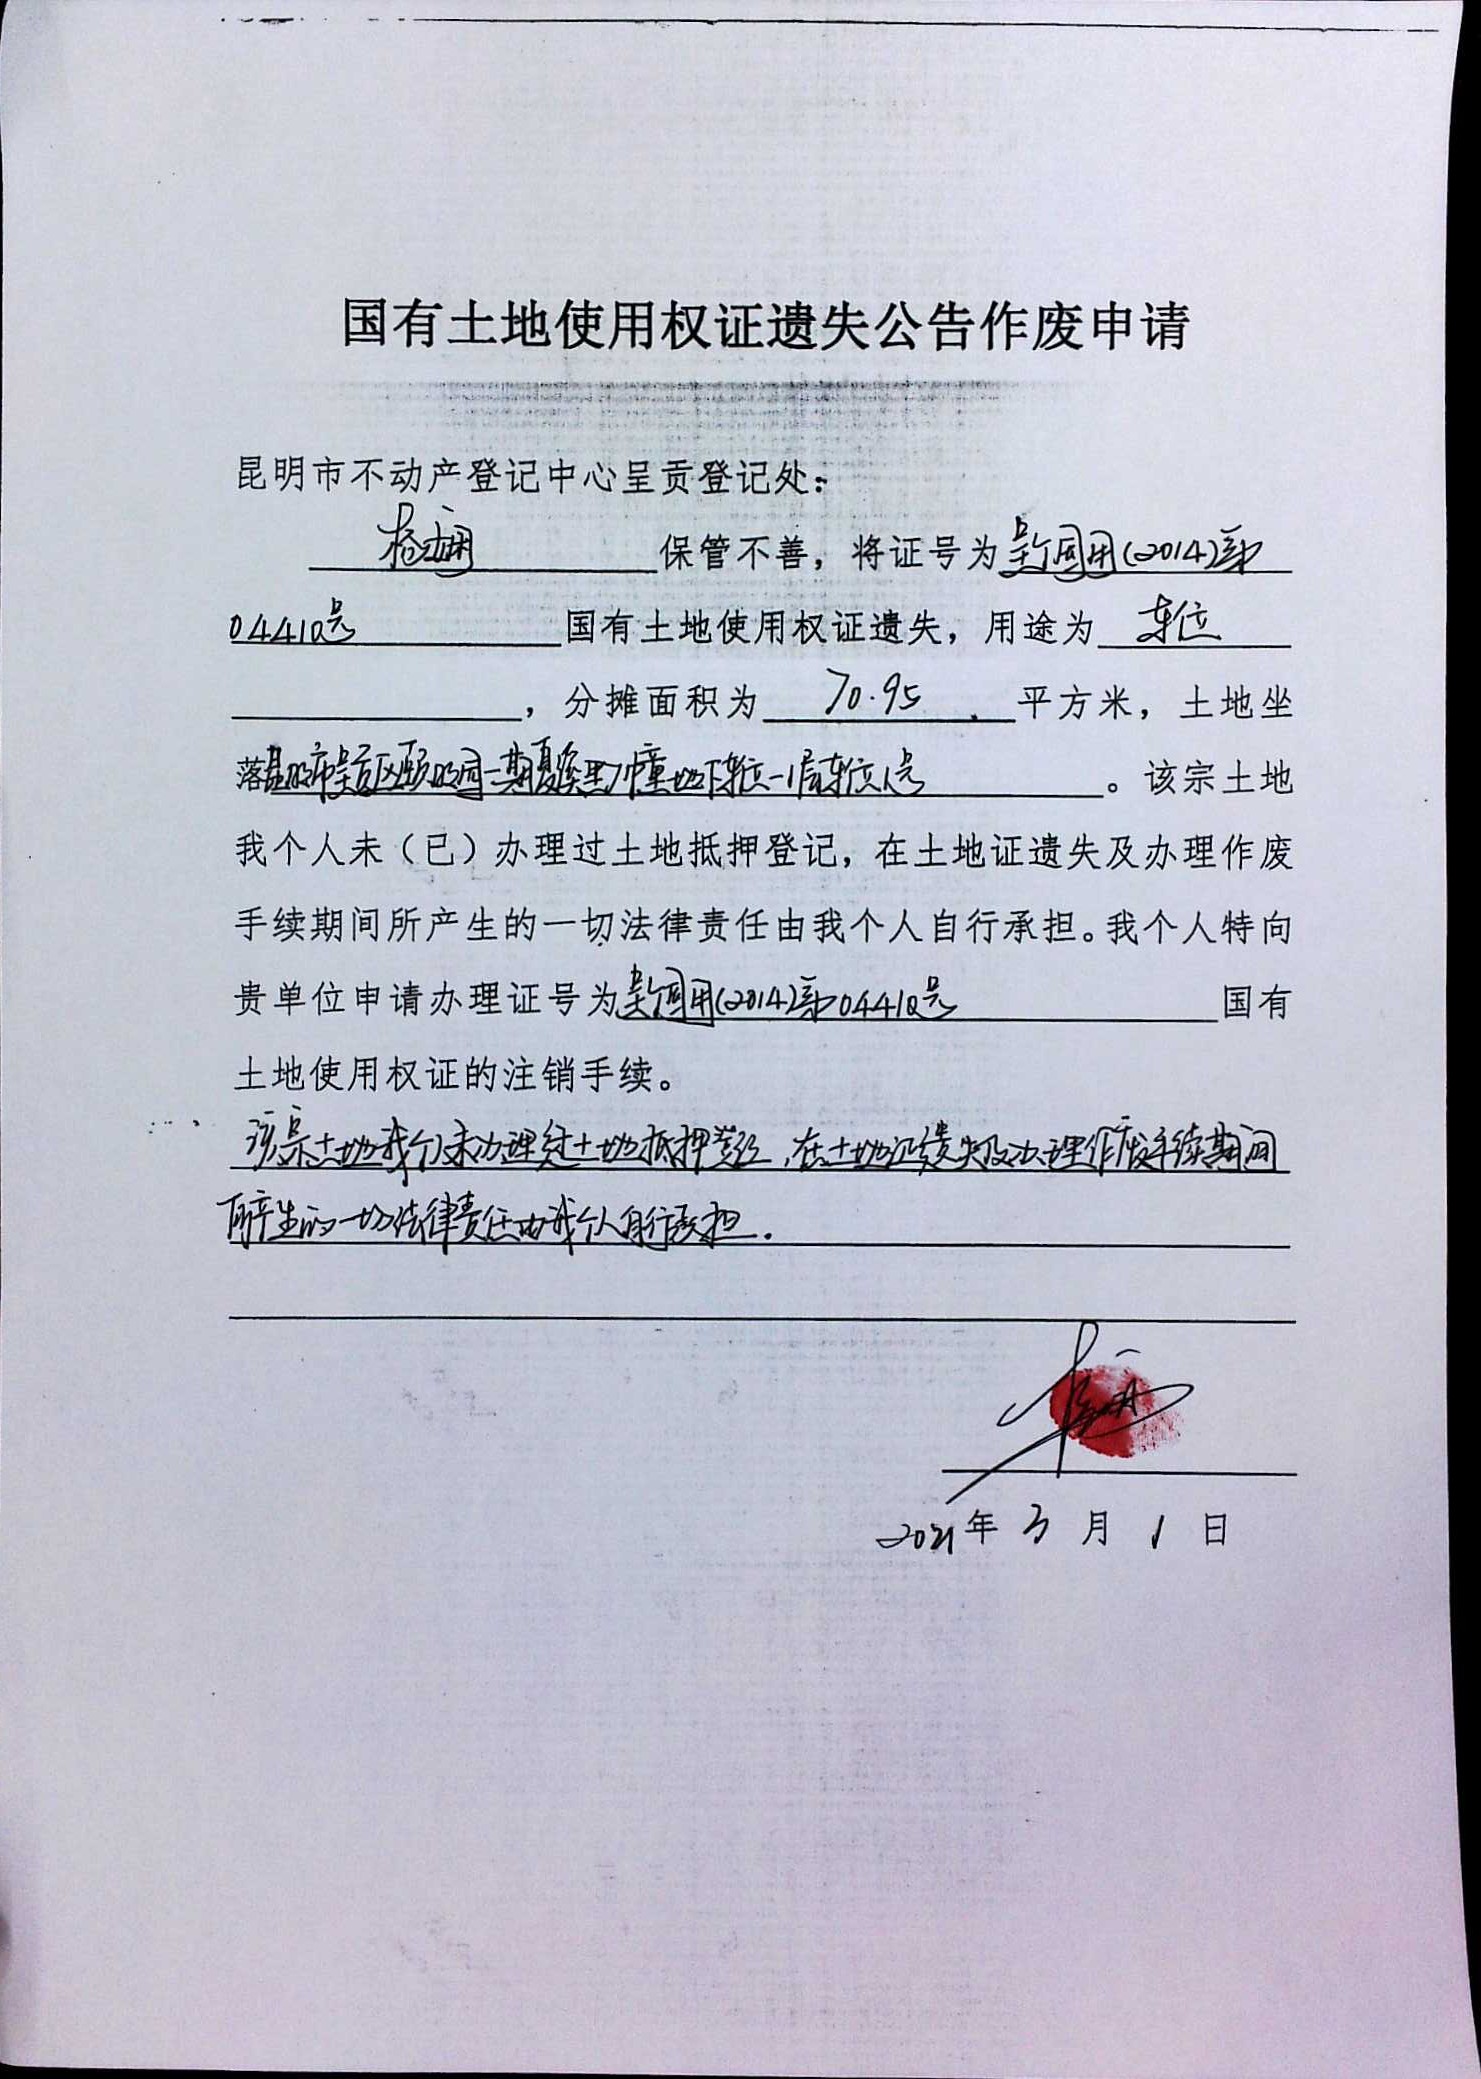 国有土地使用权证遗失公告作废申请
昆明市不动产登记中心呈贡登记处：
保管不善，将证号为呈个国用(2014)第
04410号国有土地使用权证遗失，用途为车位
，分摊面积为70.95平方米，土地坐
落昆明市呈贡区颐明园二期夏溪里7幢地下车位-1层车位1号。该宗土地
我个人未（已）办理过土地抵押登记，在土地证遗失及办理作废
手续期间所产生的一切法律责任由我个人自行承担。我个人特向
贵单位申请办理证号为呈个国用(2014)第04410号国有
土地使用权证的注销手续。
该宗土地我个人未办理过土地抵押登记，在土地证遗失及办理作废手续期间
所产生的一切法律责任由我个人自行承担.
2021年3月1日